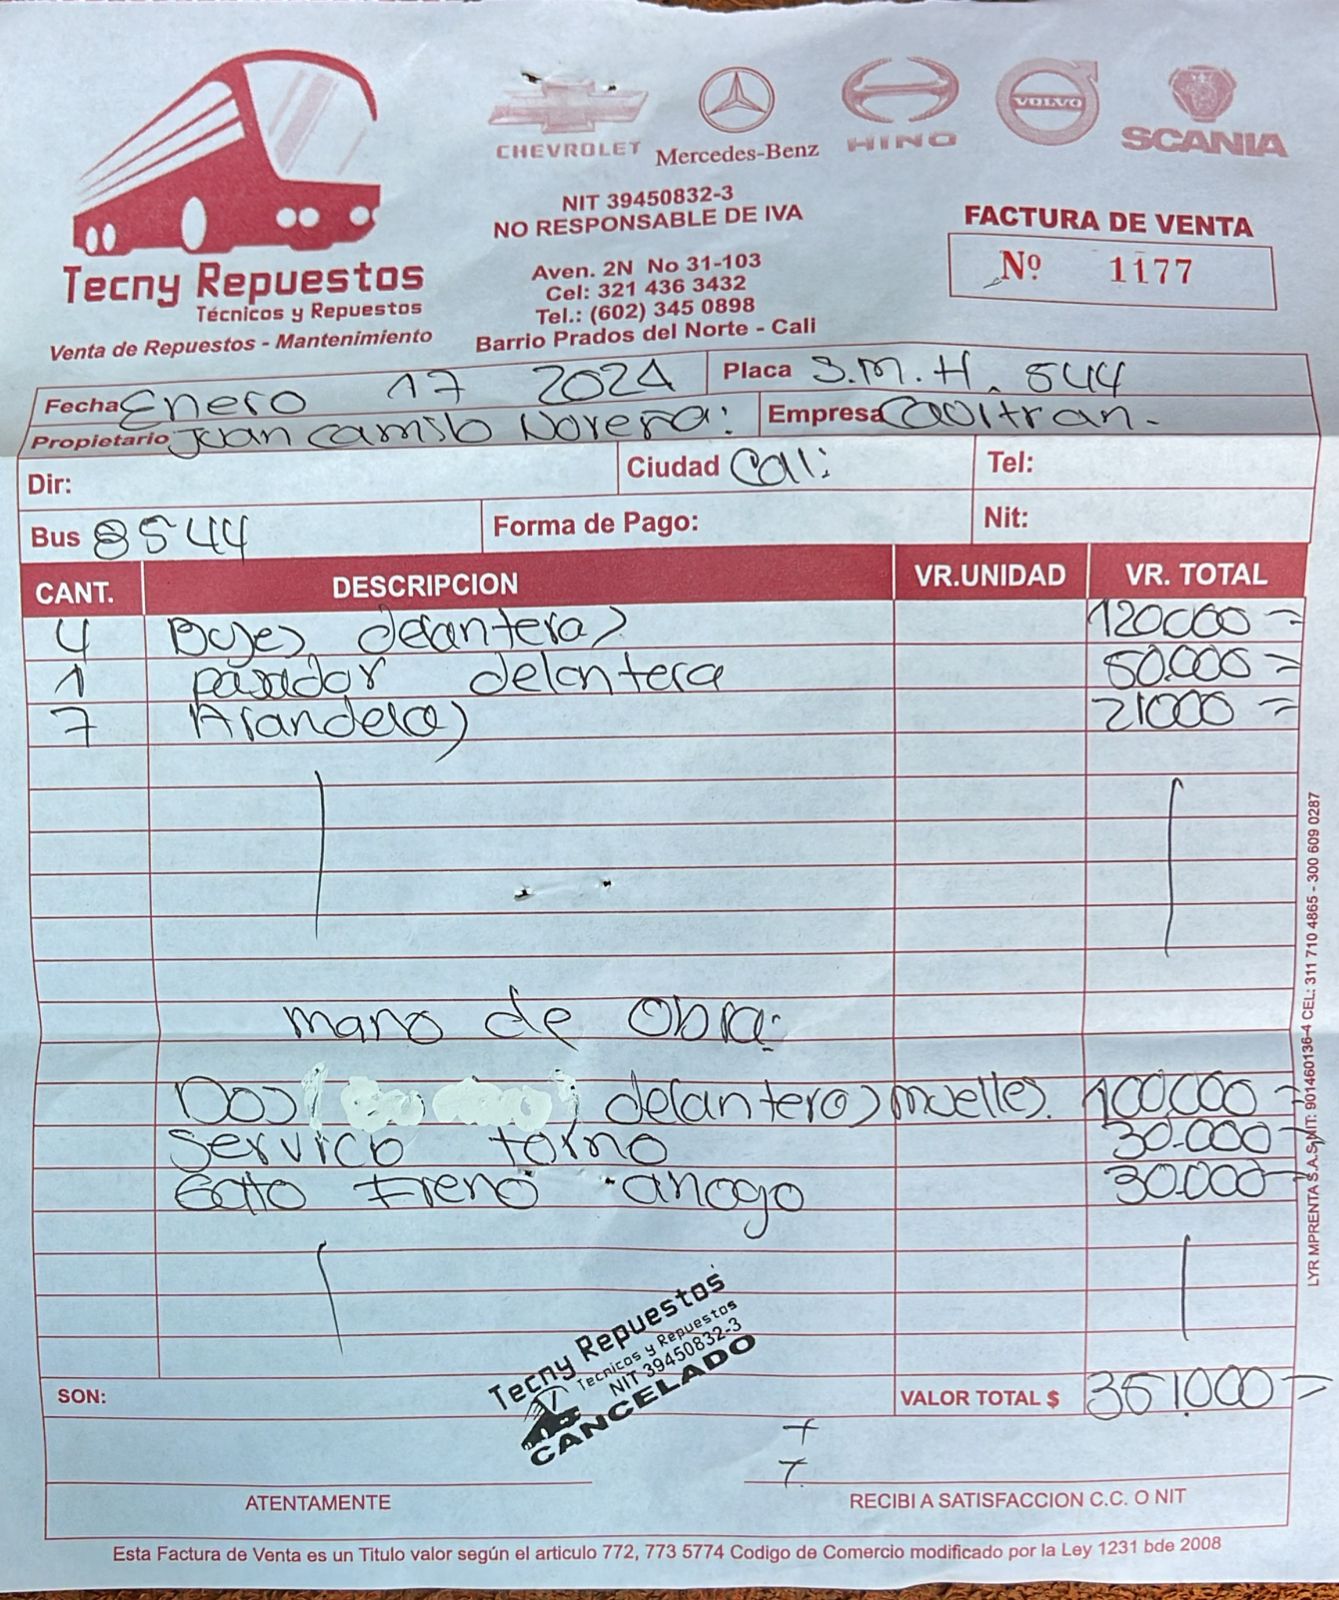 CHEVROLET
Mercedes-Benz
HINO
VOLVO
SCANIA
NIT 39450832-3
NO RESPONSABLE DE IVA
Aven. 2N No 31-103
Cel: 321 436 3432
Tel.: (602) 345 0898
Barrio Prados del Norte - Cali
FACTURA DE VENTA
Nº 1177
Tecny Repuestos
Técnicos y Repuestos
Venta de Repuestos - Mantenimiento
Fecha Enero 17 2024 Placa S.M.H. 544
Propietario Juan Camilo Noreña: Empresa Cooltran.
Dir: Ciudad Cali Tel:
Bus 8544 Forma de Pago: Nit:
CANT. DESCRIPCION VR.UNIDAD VR. TOTAL
4 Bujes delanteras 120000 =
1 pasador delantera 50.000 =
7 Arandelas 21000 =
mano de Obra:
Dos delanteros muelles. 100.000 =
Servicio torno 30.000 =
Gato Freno 30.000 =
Tecny Repuestos
Tecnicos y Repuestos
NIT 39450832-3
CANCELADO
SON: VALOR TOTAL $ 351.000 =
ATENTAMENTE RECIBI A SATISFACCION C.C. O NIT
Esta Factura de Venta es un Titulo valor según el articulo 772, 773 5774 Codigo de Comercio modificado por la Ley 1231 bde 2008
LYR MPRENTA S.A.S NIT: 901460136-4 CEL: 311 710 4865 - 300 609 0287